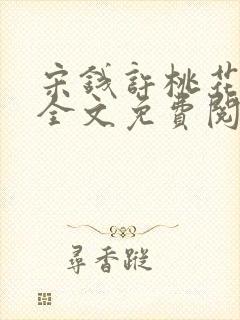 宋錢許桃花
全文免費閱
尋香蹤